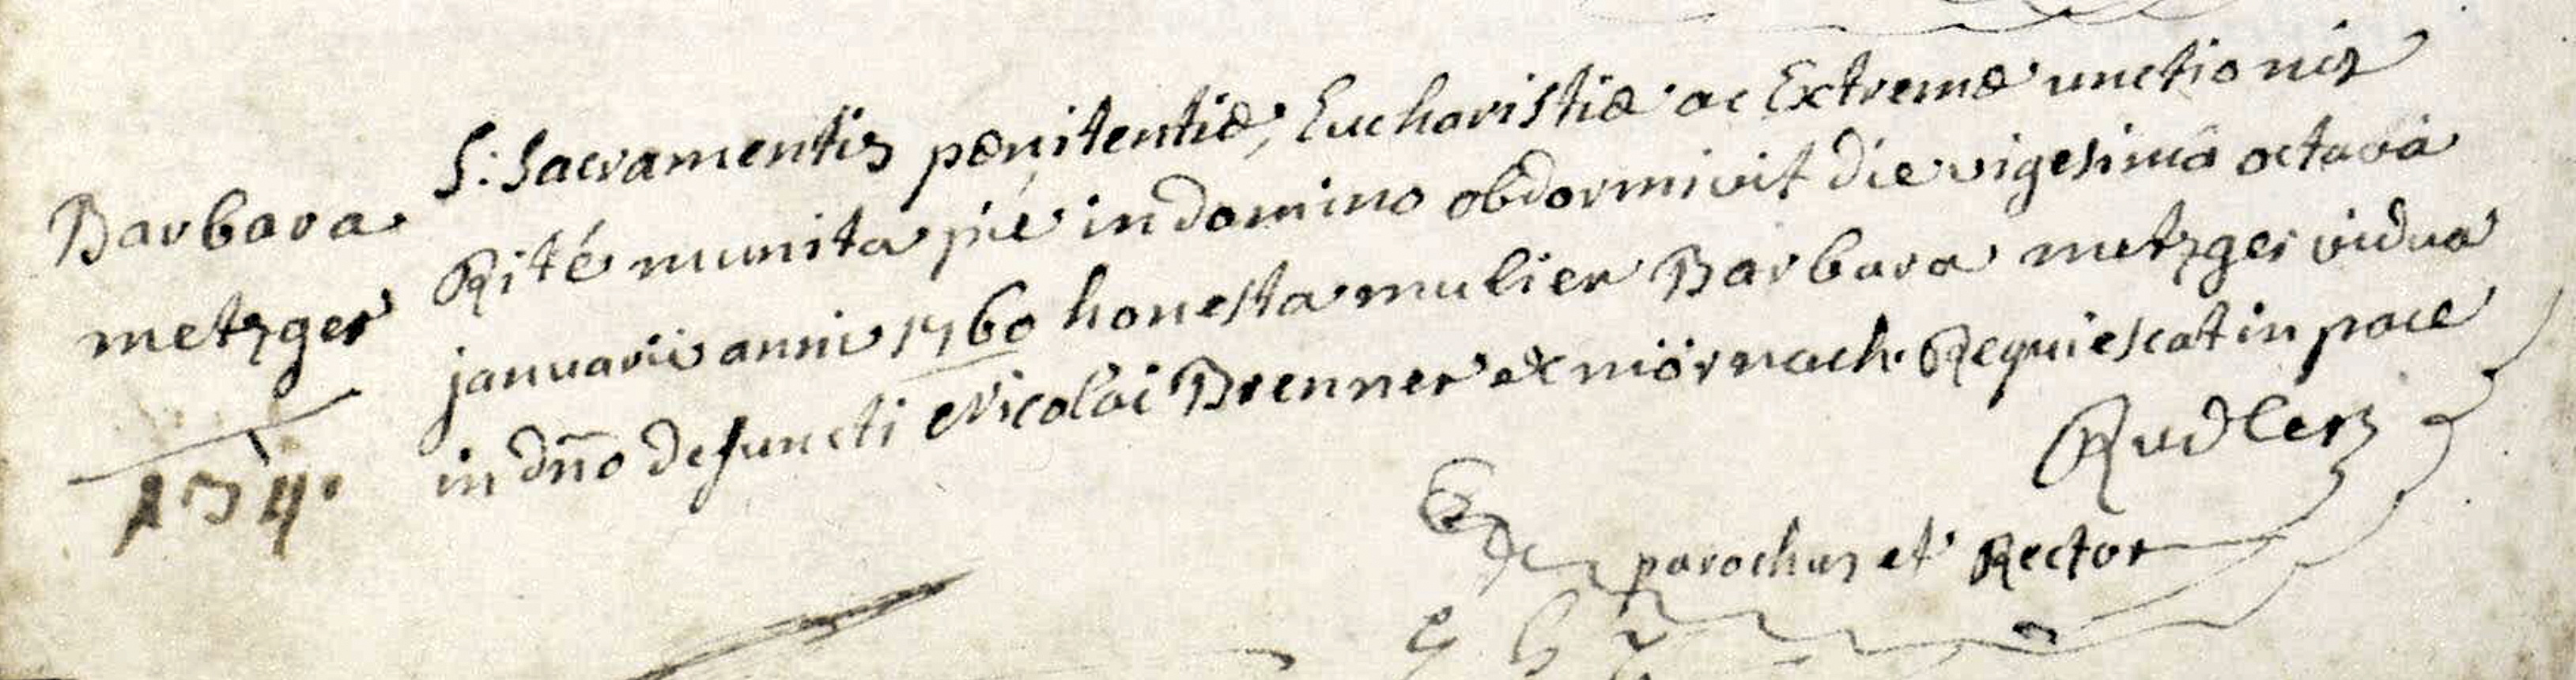 S: Sacramentis pænitentiæ, Eucharistiæ ac Extremæ unctionis
Barbara Rité munita pié in domino obdormivit die vigesimâ octavâ
metzger januarii anni 1760 honesta mulier Barbara metzger vidua
in dn̄o defuncti Nicolai Brenner ex mörnach Requiescat in pace
134.
Rudler
parochus et Rector